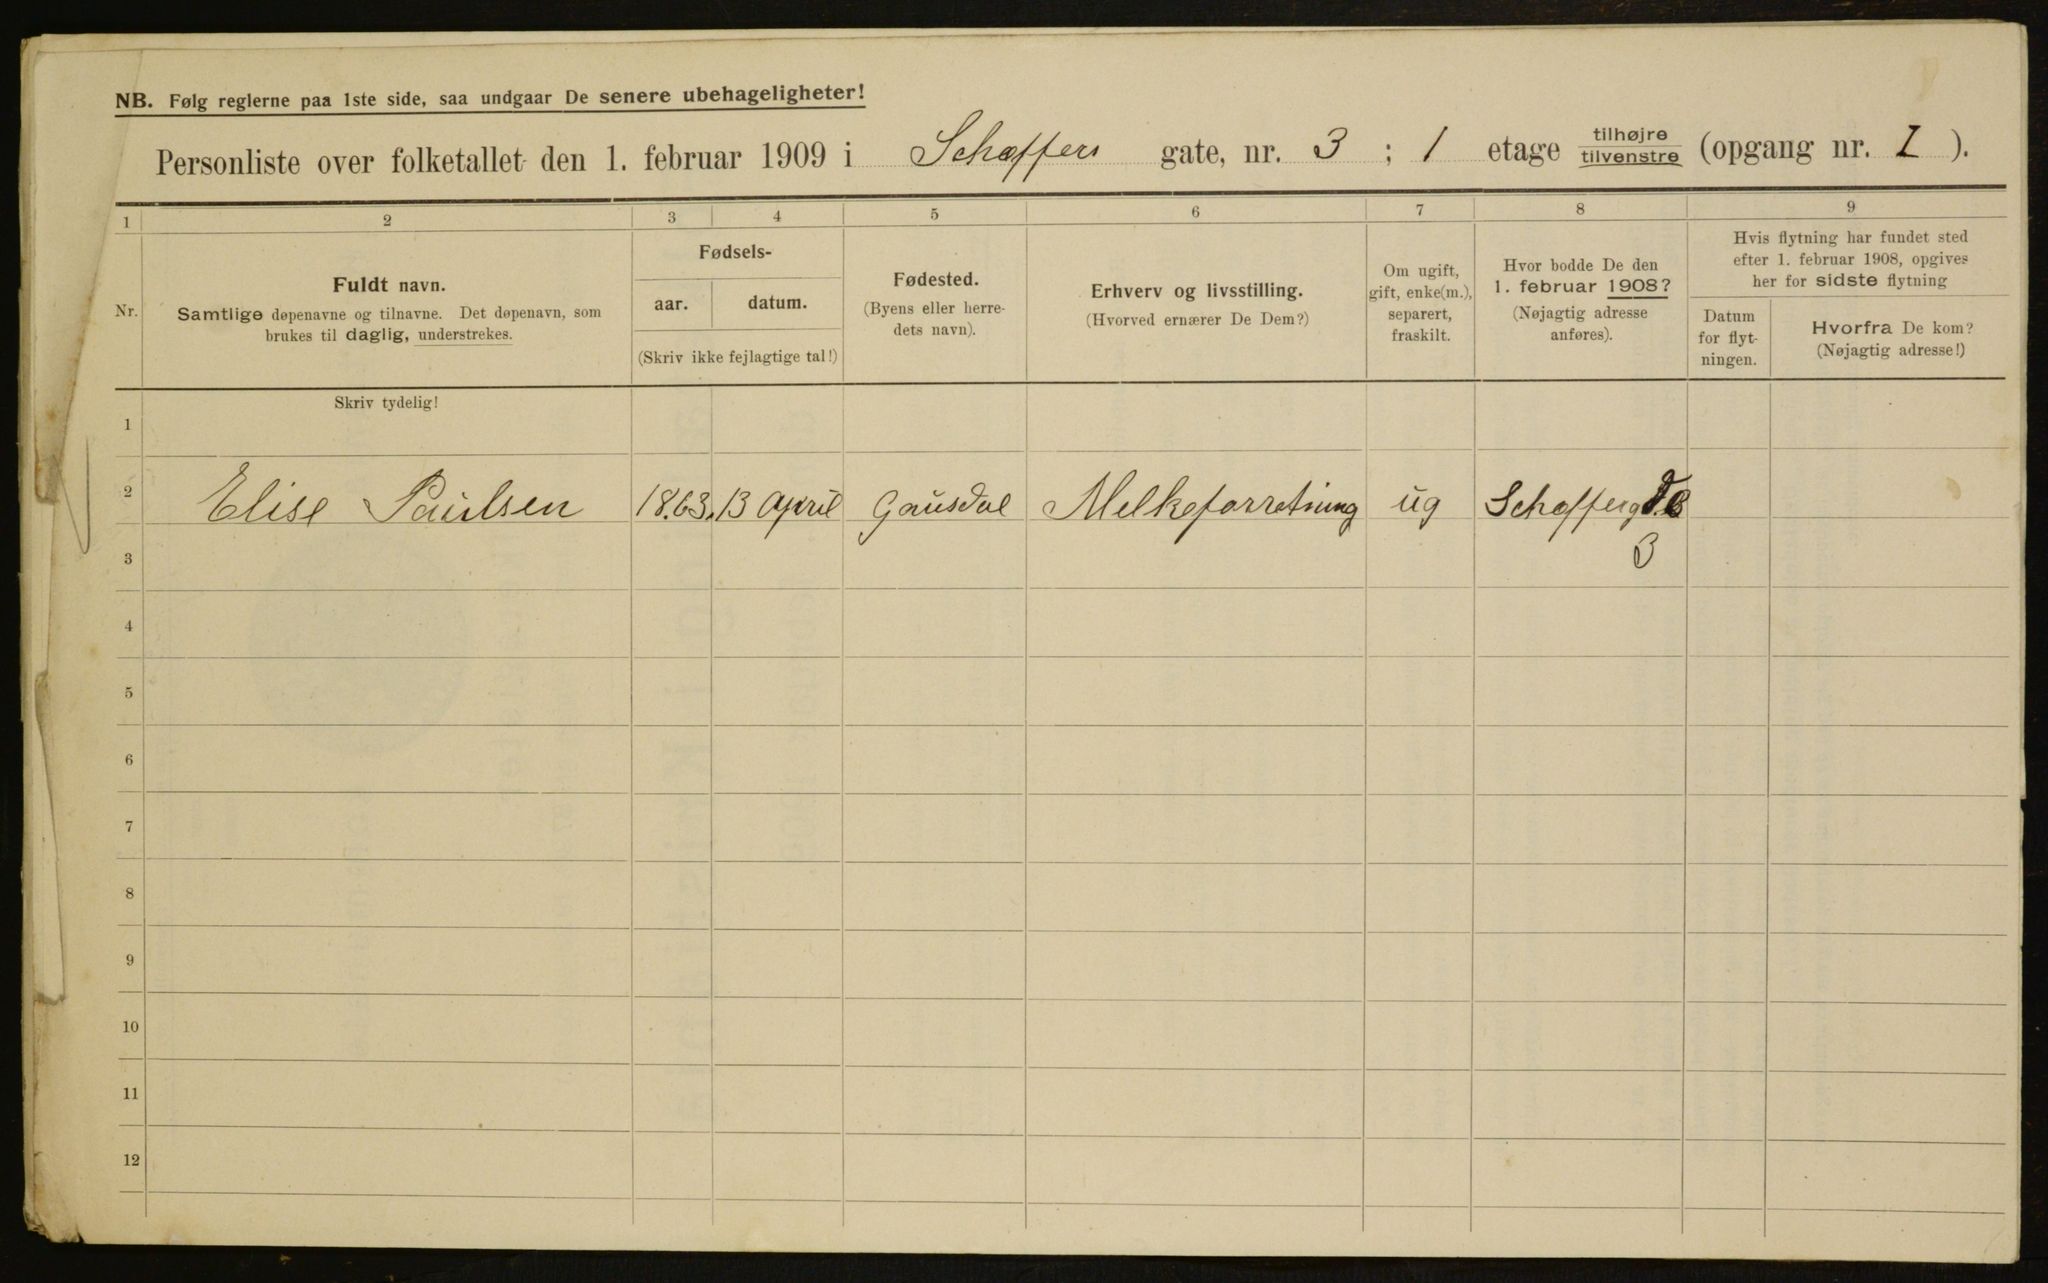 NB. Følg reglerne paa 1ste side, saa undgaar De senere ubehageligheter!
Personliste over folketallet den 1. februar 1909 i Schæffers gate, nr. 3 ; 1 etage tilhøjre tilvenstre (opgang nr. I ).
1 2 3 4 5 6 7 8 9
Nr.
Fuldt navn.
Samtlige døpenavne og tilnavne. Det døpenavn, som
brukes til daglig, understrekes.
Fødsels-
aar. datum.
(Skriv ikke fejlagtige tal!)
Fødested.
(Byens eller herre-
dets navn).
Erhverv og livsstilling.
(Hvorved ernærer De Dem?)
Om ugift,
gift, enke(m.),
separert,
fraskilt.
Hvor bodde De den
1. februar 1908?
(Nøjagtig adresse
anføres).
Hvis flytning har fundet sted
efter 1. februar 1908, opgives
her for sidste flytning
Datum
for flyt-
ningen.
Hvorfra De kom?
(Nøjagtig adresse!)
Skriv tydelig!
1
2 Elise Paulsen 1863. 13 April Gausdal Melkeforretning ug Schæfferg
3 3
4
5
6
7
8
9
10
11
12